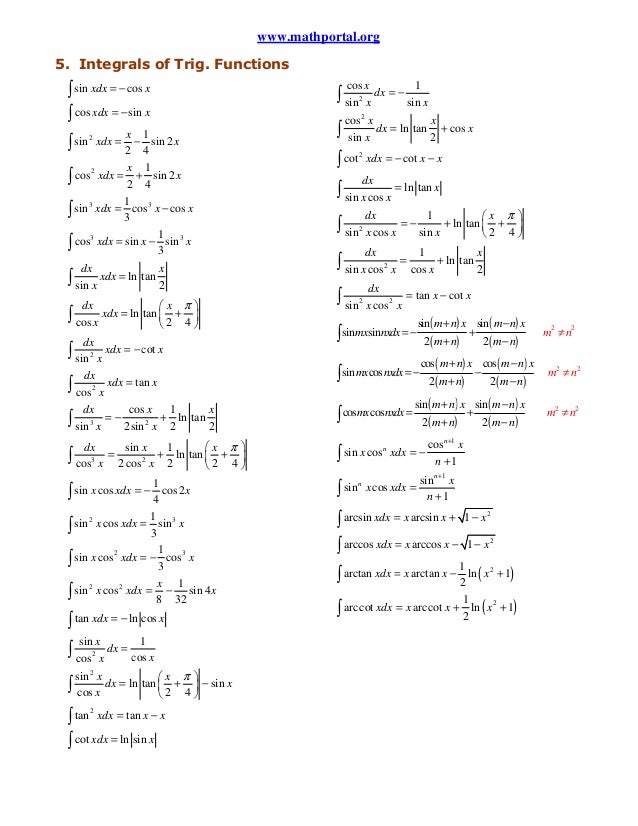 www.mathportal.org
5. Integrals of Trig. Functions
∫ sin xdx = − cos x
∫ cos xdx = − sin x
∫ sin² xdx = x/2 − 1/4 sin 2x
∫ cos² xdx = x/2 + 1/4 sin 2x
∫ sin³ xdx = 1/3 cos³ x − cos x
∫ cos³ xdx = sin x − 1/3 sin³ x
∫ dx/sin x xdx = ln |tan x/2|
∫ dx/cos x xdx = ln |tan (x/2 + π/4)|
∫ dx/sin² x xdx = − cot x
∫ dx/cos² x xdx = tan x
∫ dx/sin³ x = − cos x/2 sin² x + 1/2 ln |tan x/2|
∫ dx/cos³ x = sin x/2 cos² x + 1/2 ln |tan (x/2 + π/4)|
∫ sin x cos xdx = − 1/4 cos 2x
∫ sin² x cos xdx = 1/3 sin³ x
∫ sin x cos² xdx = − 1/3 cos³ x
∫ sin² x cos² xdx = x/8 − 1/32 sin 4x
∫ tan xdx = − ln |cos x|
∫ sin x/cos² x dx = 1/cos x
∫ sin² x/cos x dx = ln |tan (x/2 + π/4)| − sin x
∫ tan² xdx = tan x − x
∫ cot xdx = ln |sin x|
∫ cos x/sin² x dx = − 1/sin x
∫ cos² x/sin x dx = ln |tan x/2| + cos x
∫ cot² xdx = − cot x − x
∫ dx/sin x cos x = ln |tan x|
∫ dx/sin² x cos x = − 1/sin x + ln |tan (x/2 + π/4)|
∫ dx/sin x cos² x = 1/cos x + ln |tan x/2|
∫ dx/sin² x cos² x = tan x − cot x
∫ sin mx sin nxdx = − sin(m+n)x/2(m+n) + sin(m−n)x/2(m−n) m² ≠ n²
∫ sin mx cos nxdx = − cos(m+n)x/2(m+n) − cos(m−n)x/2(m−n) m² ≠ n²
∫ cos mx cos nxdx = sin(m+n)x/2(m+n) + sin(m−n)x/2(m−n) m² ≠ n²
∫ sin x cosⁿ xdx = − cosⁿ⁺¹ x/n+1
∫ sinⁿ x cos xdx = sinⁿ⁺¹ x/n+1
∫ arcsin xdx = x arcsin x + √(1 − x²)
∫ arccos xdx = x arccos x − √(1 − x²)
∫ arctan xdx = x arctan x − 1/2 ln (x² + 1)
∫ arc cot xdx = x arc cot x + 1/2 ln (x² + 1)